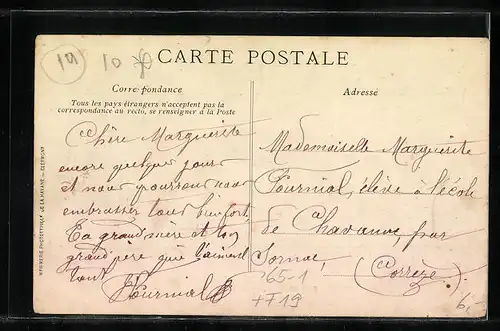 19
10
CARTE POSTALE
Correspondance
Tous les pays étrangers n'acceptent pas la
correspondance au recto, se renseigner à la Poste
Chère Marguerite
encore quelque jour
et nous pourrons nous
embrasser tous bien fort
Ta grand mère et ton
grand père qui t'aiment
tant
Fournial
Adresse
Mademoiselle Marguerite
Fournial, élève à l'école
de Chavanac, par
Sornac,
(Corrèze).
65-1
+719
6,-